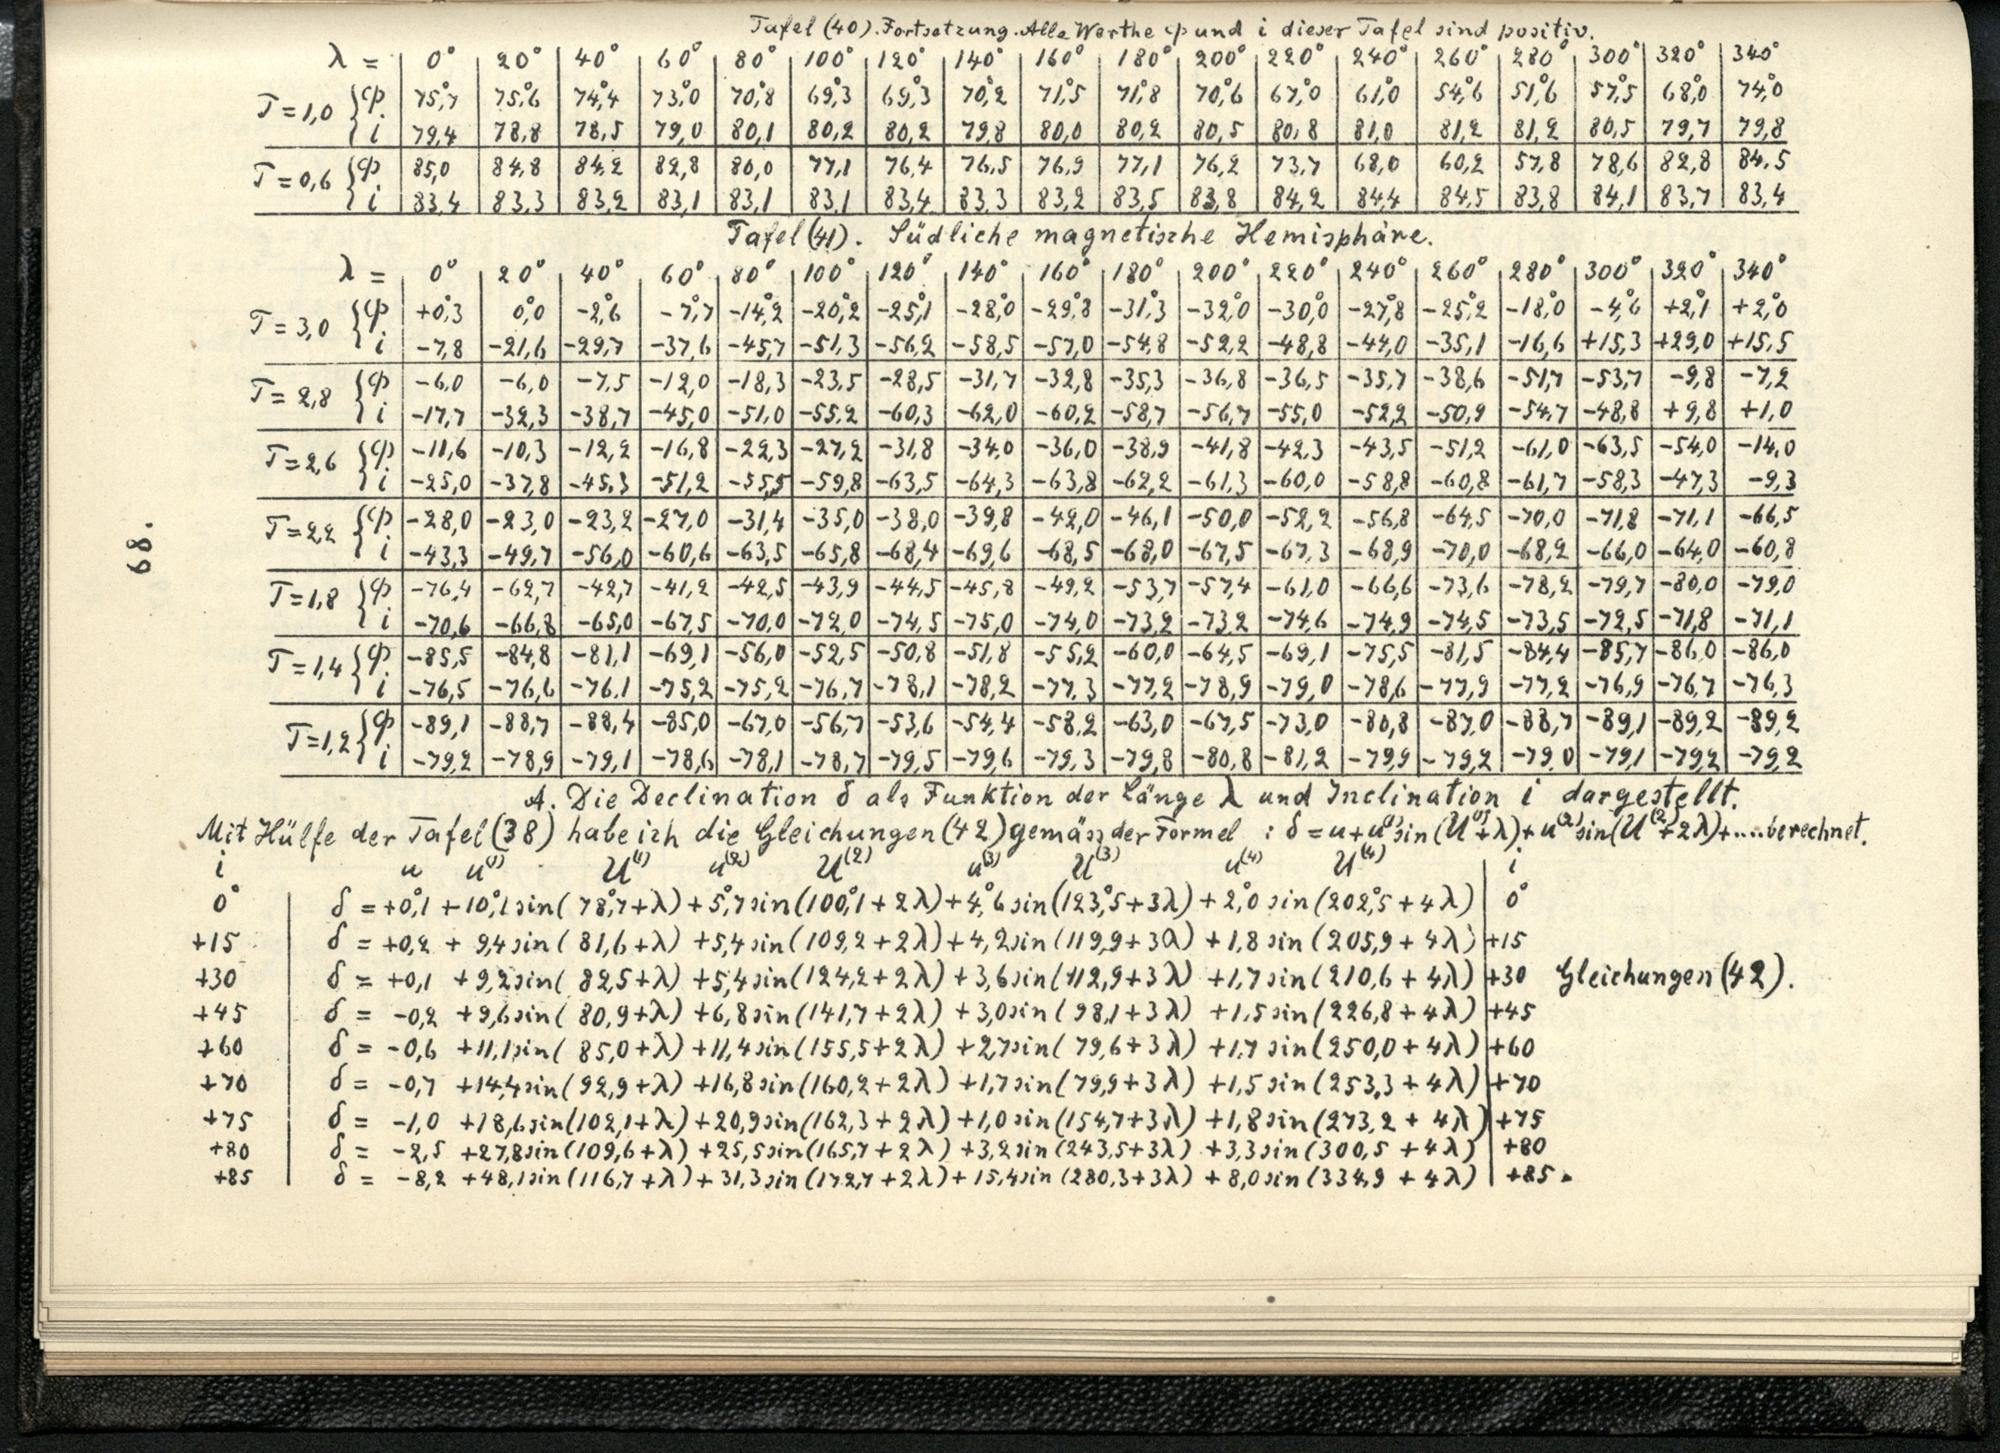 Tafel (40). Fortsetzung. Alle Werthe φ und i dieser Tafel sind positiv.
λ = 0° 20° 40° 60° 80° 100° 120° 140° 160° 180° 200° 220° 240° 260° 280° 300° 320° 340°
T=1,0 { φ 75°,7 75°,6 74°,4 73°,0 70°,8 69°,3 69°,3 70°,2 71°,5 71°,8 70°,6 67°,0 61°,0 54°,6 51°,6 57°,5 68°,0 74°,0
i 79,4 78,8 78,5 79,0 80,1 80,2 80,2 79,8 80,0 80,2 80,5 80,8 81,0 81,2 81,2 80,5 79,7 79,8
T=0,6 { φ 85,0 84,8 84,2 82,8 80,0 77,1 76,4 76,5 76,9 77,1 76,2 73,7 68,0 60,2 57,8 78,6 82,8 84,5
i 83,4 83,3 83,2 83,1 83,1 83,1 83,4 83,3 83,2 83,5 83,8 84,2 84,4 84,5 83,8 84,1 83,7 83,4
Tafel (41). Südliche magnetische Hemisphäre.
λ = 0° 20° 40° 60° 80° 100° 120° 140° 160° 180° 200° 220° 240° 260° 280° 300° 320° 340°
T=3,0 { φ +0°,3 0°,0 -2°,6 -7°,7 -14°,2 -20°,2 -25°,1 -28°,0 -29°,8 -31°,3 -32°,0 -30°,0 -27°,8 -25°,2 -18°,0 -4°,6 +2°,1 +2°,0
i -7,8 -21,6 -29,7 -37,6 -45,7 -51,3 -56,2 -58,5 -57,0 -54,8 -52,2 -48,8 -44,0 -35,1 -16,6 +15,3 +29,0 +15,5
T=2,8 { φ -6,0 -6,0 -7,5 -12,0 -18,3 -23,5 -28,5 -31,7 -32,8 -35,3 -36,8 -36,5 -35,7 -38,6 -51,7 -53,7 -9,8 -7,2
i -17,7 -32,3 -38,7 -45,0 -51,0 -55,2 -60,3 -62,0 -60,2 -58,7 -56,7 -55,0 -52,2 -50,9 -54,7 -48,8 +9,8 +1,0
T=2,6 { φ -11,6 -10,3 -12,2 -16,8 -22,3 -27,2 -31,8 -34,0 -36,0 -38,9 -41,8 -42,3 -43,5 -51,2 -61,0 -63,5 -54,0 -14,0
i -25,0 -37,8 -45,3 -51,2 -55,5 -59,8 -63,5 -64,3 -63,8 -62,2 -61,3 -60,0 -58,8 -60,8 -61,7 -58,3 -47,3 -9,3
T=2,2 { φ -28,0 -23,0 -23,2 -27,0 -31,4 -35,0 -38,0 -39,8 -42,0 -46,1 -50,0 -52,2 -56,8 -64,5 -70,0 -71,8 -71,1 -66,5
i -43,3 -49,7 -56,0 -60,6 -63,5 -65,8 -68,4 -69,6 -68,5 -68,0 -67,5 -67,3 -68,9 -70,0 -68,2 -66,0 -64,0 -60,8
T=1,8 { φ -76,4 -62,7 -42,7 -41,2 -42,5 -43,9 -44,5 -45,8 -49,2 -53,7 -57,4 -61,0 -66,6 -73,6 -78,2 -79,7 -80,0 -79,0
i -70,6 -66,8 -65,0 -67,5 -70,0 -72,0 -74,5 -75,0 -74,0 -73,2 -73,2 -74,6 -74,9 -74,5 -73,5 -72,5 -71,8 -71,1
T=1,4 { φ -85,5 -84,8 -81,1 -69,1 -56,0 -52,5 -50,8 -51,8 -55,2 -60,0 -64,5 -69,1 -75,5 -81,5 -84,4 -85,7 -86,0 -86,0
i -76,5 -76,6 -76,1 -75,2 -75,2 -76,7 -78,1 -78,2 -77,3 -77,2 -78,9 -79,0 -78,6 -77,9 -77,2 -76,9 -76,7 -76,3
T=1,2 { φ -89,1 -88,7 -88,4 -85,0 -67,0 -56,7 -53,6 -54,4 -58,2 -63,0 -67,5 -73,0 -80,8 -87,0 -88,7 -89,1 -89,2 -89,2
i -79,2 -78,9 -79,1 -78,6 -78,1 -78,7 -79,5 -79,6 -79,3 -79,8 -80,8 -81,2 -79,9 -79,2 -79,0 -79,1 -79,2 -79,2
A. Die Declination δ als Funktion der Länge λ und Inclination i dargestellt.
Mit Hülfe der Tafel (38) habe ich die Gleichungen (42) gemäss der Formel : δ = u+u⁽¹⁾sin(U⁽¹⁾+λ)+u⁽²⁾sin(U⁽²⁾+2λ)+....berechnet.
i u u⁽¹⁾ U⁽¹⁾ u⁽²⁾ U⁽²⁾ u⁽³⁾ U⁽³⁾ u⁽⁴⁾ U⁽⁴⁾ i
0° δ = +0°,1 +10°,1sin( 78°,7+λ) +5°,7sin(100°,1+2λ) +4°,6sin(123°,5+3λ) +2°,0 sin(202°,5+4λ) 0°
+15 δ = +0,2 + 9,4sin( 81,6+λ) +5,4sin(109,2+2λ) +4,2sin(119,9+3λ) +1,8 sin(205,9+4λ) +15
+30 δ = +0,1 +9,2sin( 82,5+λ) +5,4sin(124,2+2λ) +3,6sin(112,9+3λ) +1,7 sin(210,6+4λ) +30 Gleichungen (42).
+45 δ = -0,2 +9,6sin( 80,9+λ) +6,8sin(141,7+2λ) +3,0sin( 98,1+3λ) +1,5sin(226,8+4λ) +45
+60 δ = -0,6 +11,1sin( 85,0+λ) +11,4sin(155,5+2λ) +2,7sin( 79,6+3λ) +1,7 sin(250,0+4λ) +60
+70 δ = -0,7 +14,4sin(92,9+λ) +16,8sin(160,2+2λ) +1,7sin(79,9+3λ) +1,5 sin(253,3+4λ) +70
+75 δ = -1,0 +18,6sin(102,1+λ) +20,9sin(162,3+2λ) +1,0sin(154,7+3λ) +1,8sin(273,2+4λ) +75
+80 δ = -2,5 +27,8sin(109,6+λ) +25,5sin(165,7+2λ) +3,2sin(243,5+3λ) +3,3sin(300,5+4λ) +80
+85 δ = -8,2 +48,1sin(116,7+λ) +31,3sin(172,7+2λ) +15,4sin(280,3+3λ) +8,0sin(334,9+4λ) +85.
68.